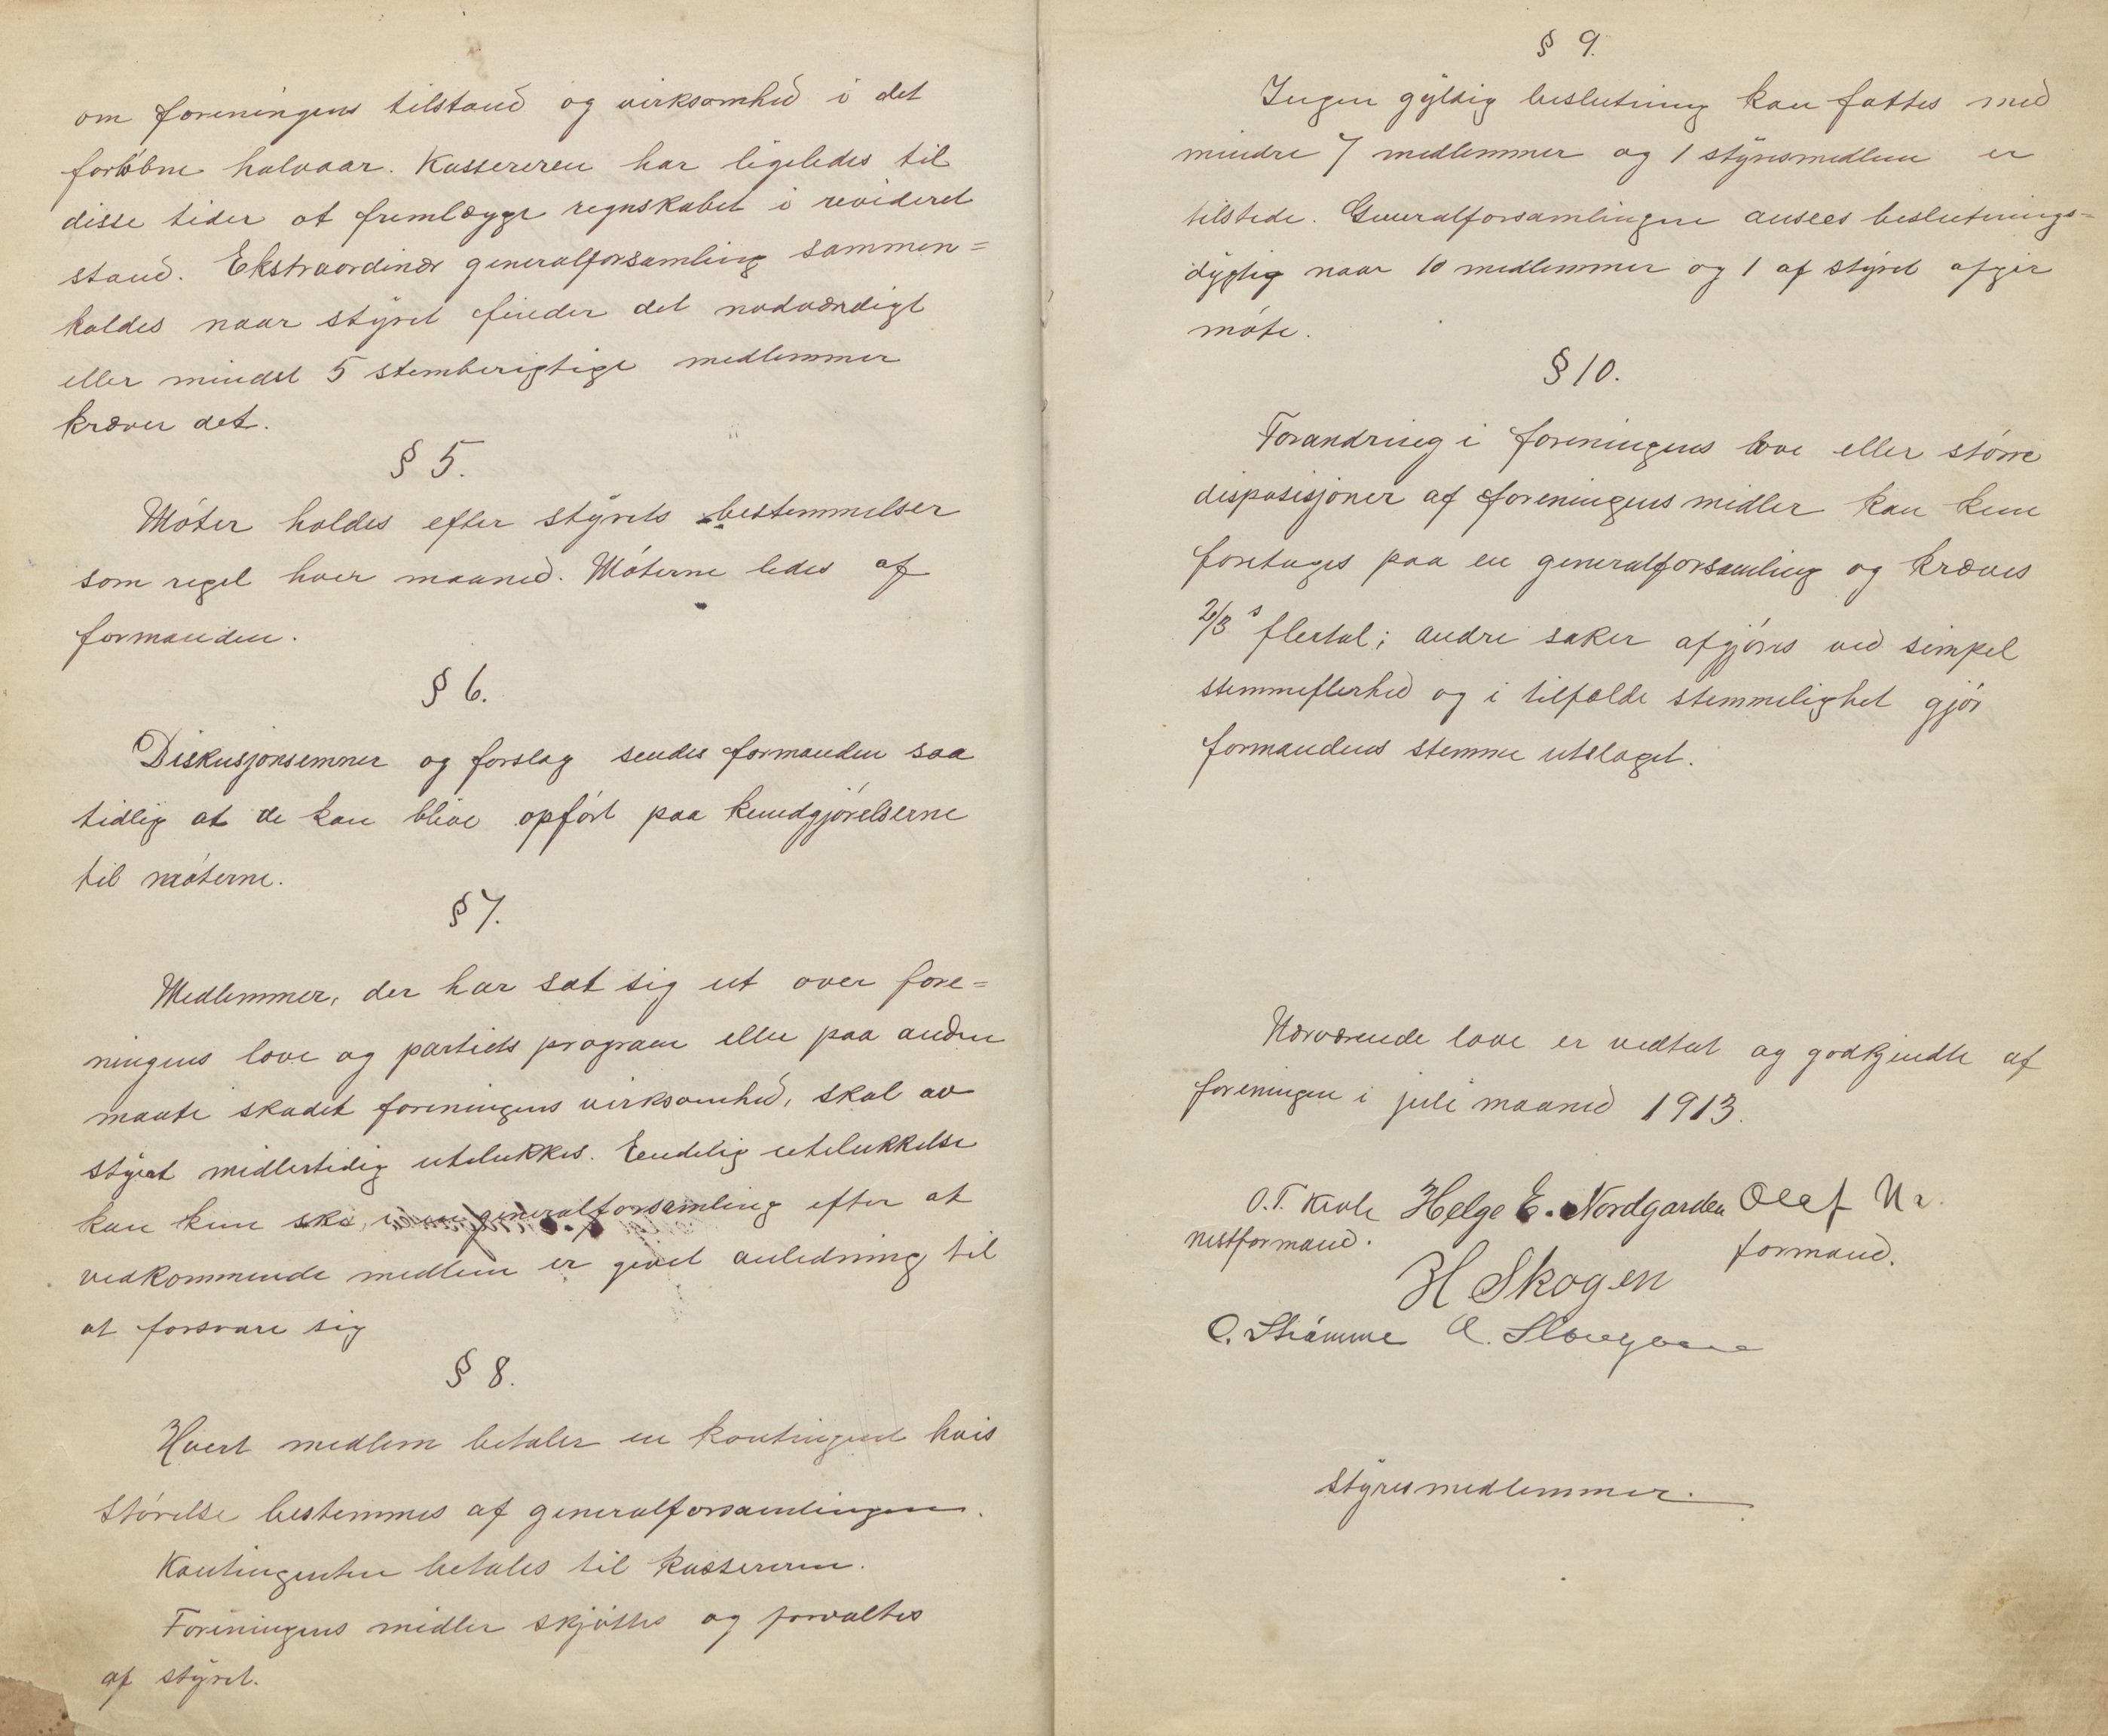 om foreningens tilstand og virksomhed i det
forløbne halvaar. Kassereren har ligeledes til
disse tider at fremlægge regnskabet i revideret
stand. Ekstraordinær generalforsamling sammen=
kaldes naar styret finder det nødvændigt
eller mindst 5 stemberigtige medlemmer
kræver det.
§ 5.
Móter holdes efter styrets bestemmelser
som regel hver maaned. Móterne ledes af
formanden.
§ 6.
Diskusjonsemner og forslag sendes formanden saa
tidlig at de kan blive opfórt paa kundgjórelserne
til móterne.
§ 7.
Medlemmer, der har sat sig ut over fore=
ningens love og partiets program eller paa anden
maate skadet foreningens virksomhed, skal av
styret midlertidig utelukkes. Endelig utelukkelse
kan kun ske i en generalforsamling efter at
vedkommende medlem er givet anledning til
at forsvare sig
§ 8.
Hvert medlem betaler en kontingent hvis
stórelse bestemmes af generalforsamlingen.
Kontingenten betales til kassereren.
Foreningens midler skjóttes og forvaltes
af styret.
§ 9.
Ingen gyldig beslutning kan fattes med
mindre 7 medlemmer og 1 styresmedlem er
tilstede. Generalforsamlingen ansees beslutnings=
dygtig naar 10 medlemmer og 1 af styret afgir
móte.
§ 10.
Forandring i foreningens love eller stórre
disposisjoner af foreningens midler kan kun
foretages paa en generalforsamling og kræves
2/3 s flertal; andre saker afgjóres ved simpel
stemmeflerhed og i tilfælde stemmelighet gjór
formandens stemme utslaget.
Nærværende love er vedtat og godkjendte af
foreningen i juli maaned 1913.
O.T. Helge E. Nordgarden Olaf
nestformand. formand.
H Skogen
O. Strómme A.
styresmedlemmer.